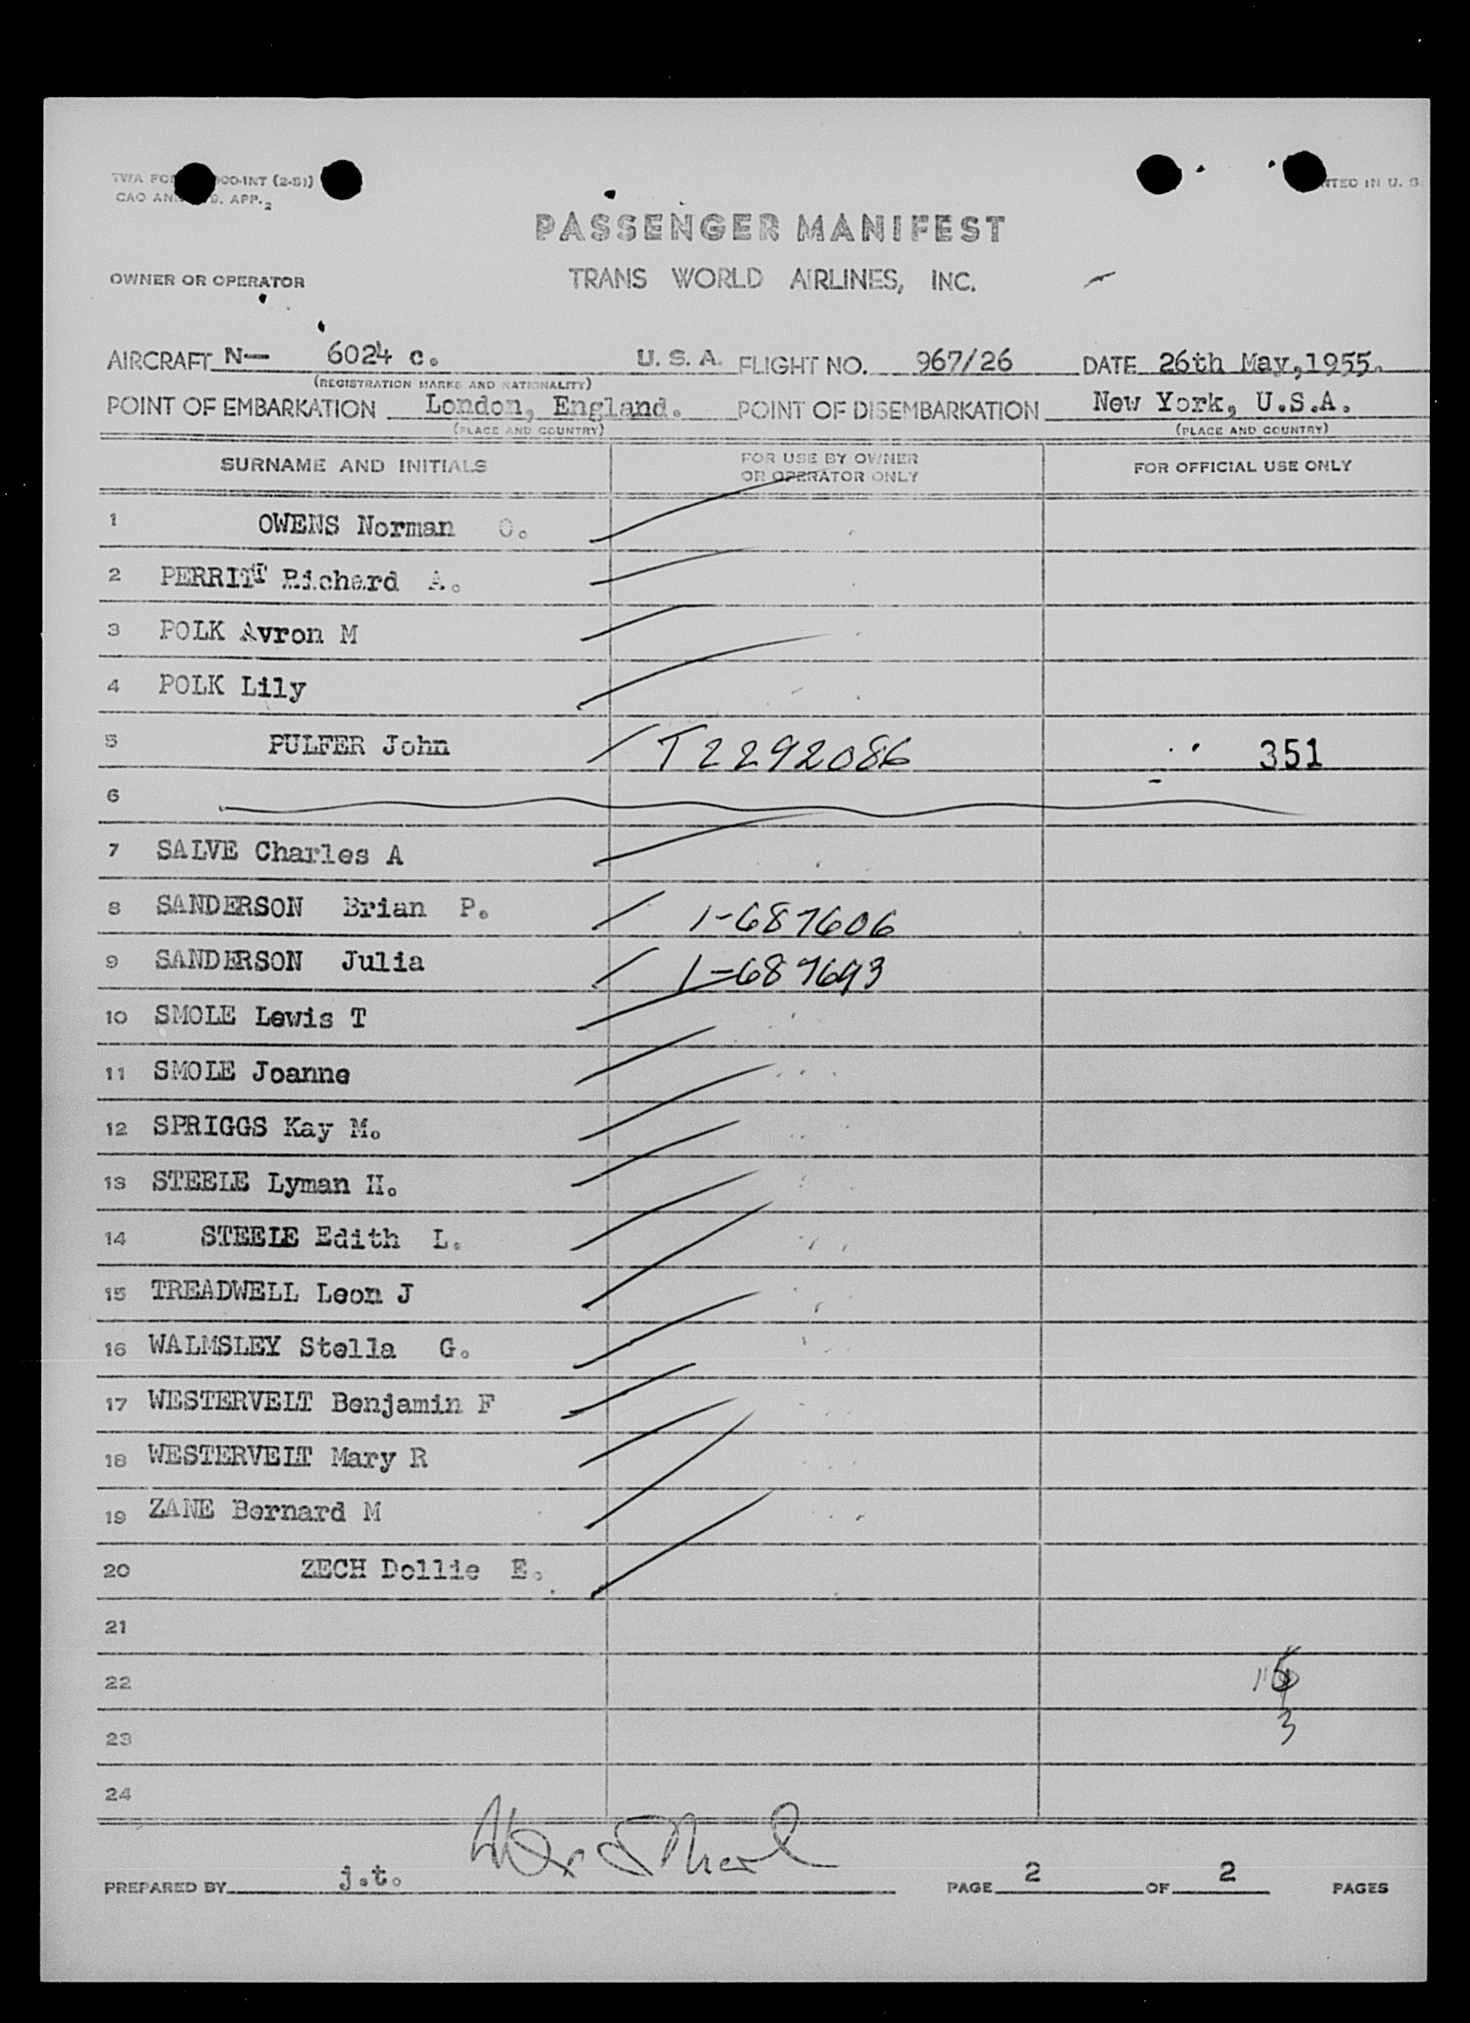 TWA FO 00-INT (2-51)
CAO ANN 9. APP. 2
NTED IN U. S.
PASSENGER MANIFEST
OWNER OR OPERATOR TRANS WORLD AIRLINES, INC.
AIRCRAFT N— 6024 c. U. S. A. FLIGHT NO. 967/26 DATE 26th May,1955.
(REGISTRATION MARKS AND NATIONALITY)
POINT OF EMBARKATION London, England. POINT OF DISEMBARKATION New York, U.S.A.
(PLACE AND COUNTRY) (PLACE AND COUNTRY)
SURNAME AND INITIALS FOR USE BY OWNER OR OPERATOR ONLY FOR OFFICIAL USE ONLY
1 OWENS Norman O.
2 PERRITT Richard A.
3 POLK Avron M
4 POLK Lily
5 PULFER John T2292086 351
6
7 SALVE Charles A
8 SANDERSON Brian P. 1-687606
9 SANDERSON Julia 1-687693
10 SMOLE Lewis T
11 SMOLE Joanne
12 SPRIGGS Kay M.
13 STEELE Lyman H.
14 STEELE Edith L.
15 TREADWELL Leon J
16 WALMSLEY Stella G.
17 WESTERVELT Benjamin F
18 WESTERVELT Mary R
19 ZANE Bernard M
20 ZECH Dollie E.
21
22
23 3
24
PREPARED BY j.t. PAGE 2 OF 2 PAGES